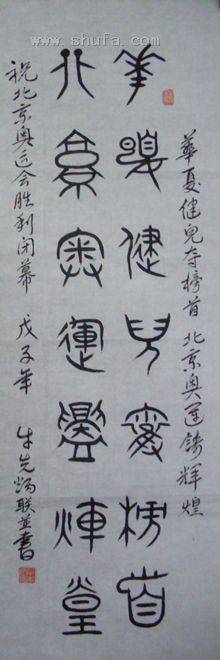 www.shufa.com
華夏健兒夺榜首 北京奥運鑄輝煌
華夏健兒奪榜首
北京奥運鑄輝煌
祝北京奥运会胜利闭幕 戊子年 牛先 联並書